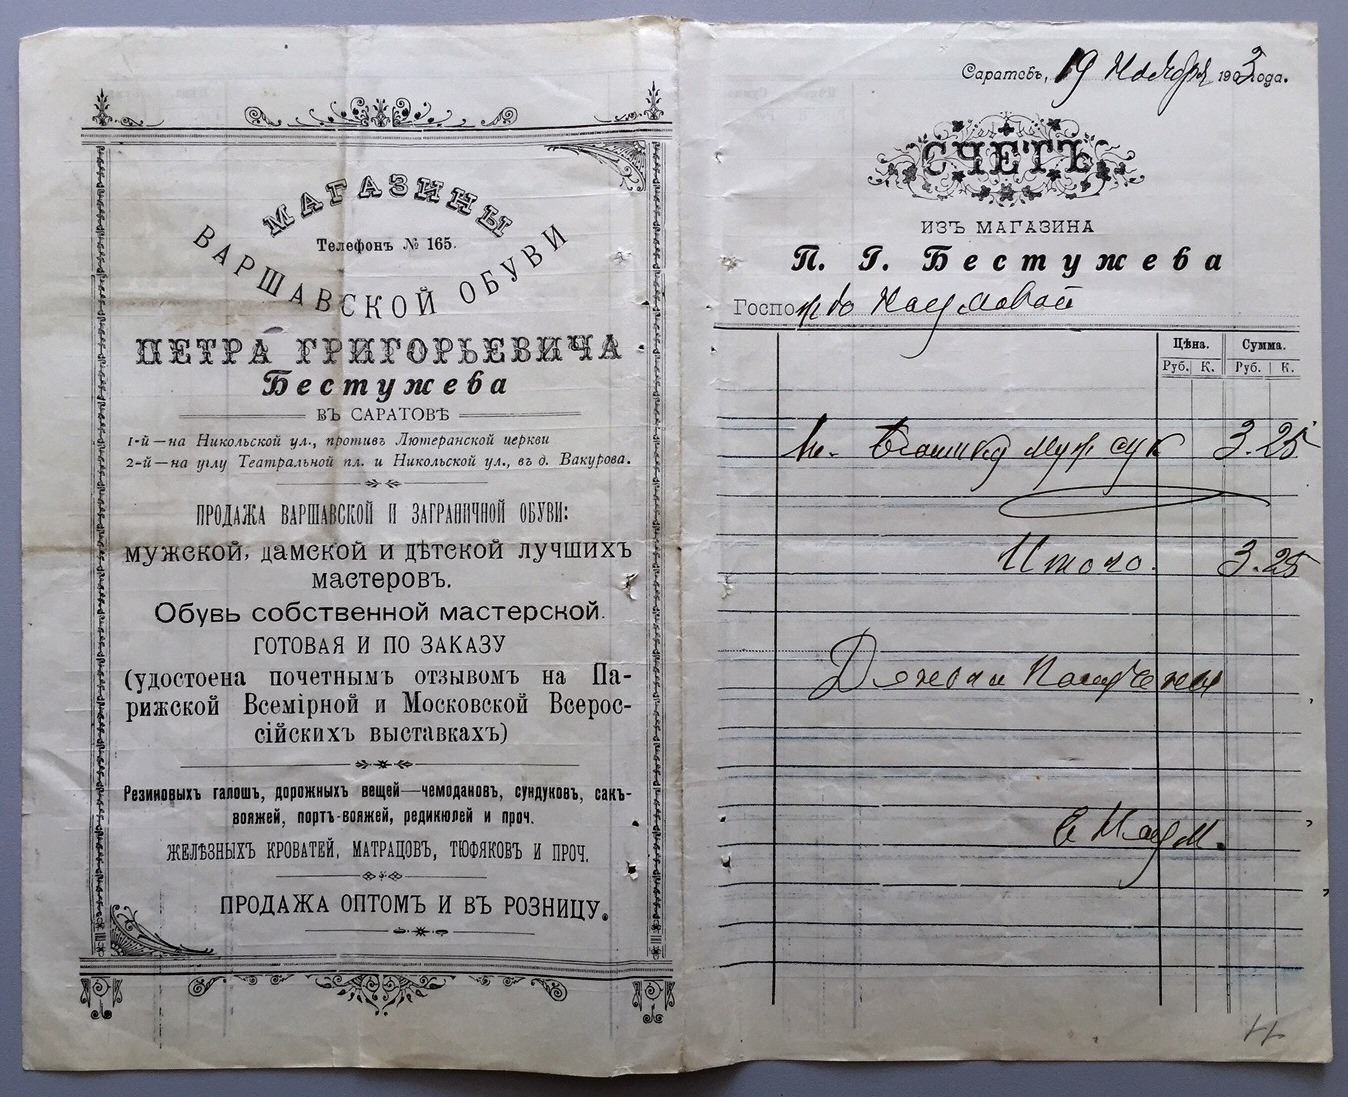 МАГАЗИНЫ
Телефонъ № 165.
ВАРШАВСКОЙ ОБУВИ
ПЕТРА ГРИГОРЬЕВИЧА
Бестужева
ВЪ САРАТОВѢ
1-й — на Никольской ул., противъ Лютеранской церкви
2-й — на углу Театральной пл. и Никольской ул., въ д. Вакурова.
ПРОДАЖА ВАРШАВСКОЙ И ЗАГРАНИЧНОЙ ОБУВИ:
мужской, дамской и дѣтской лучшихъ
мастеровъ.
Обувь собственной мастерской.
ГОТОВАЯ И ПО ЗАКАЗУ
(удостоена почетнымъ отзывомъ на Па-
рижской Всемірной и Московской Всерос-
сійскихъ выставкахъ)
Резиновыхъ галошъ, дорожныхъ вещей—чемодановъ, сундуковъ, сакъ-
вояжей, портъ-вояжей, редикюлей и проч.
ЖЕЛѢЗНЫХЪ КРОВАТЕЙ, МАТРАЦОВЪ, ТЮФЯКОВЪ И ПРОЧ.
ПРОДАЖА ОПТОМЪ И ВЪ РОЗНИЦУ.
Саратовъ, 19 Ноября 1903 года.
СЧЕТЪ
ИЗЪ МАГАЗИНА
П. Г. Бестужева
Госпо Наумовой
Цѣна. Сумма.
Руб. К. Руб. К.
муж сук 3.25
Итого. 3.25
Деньги получены